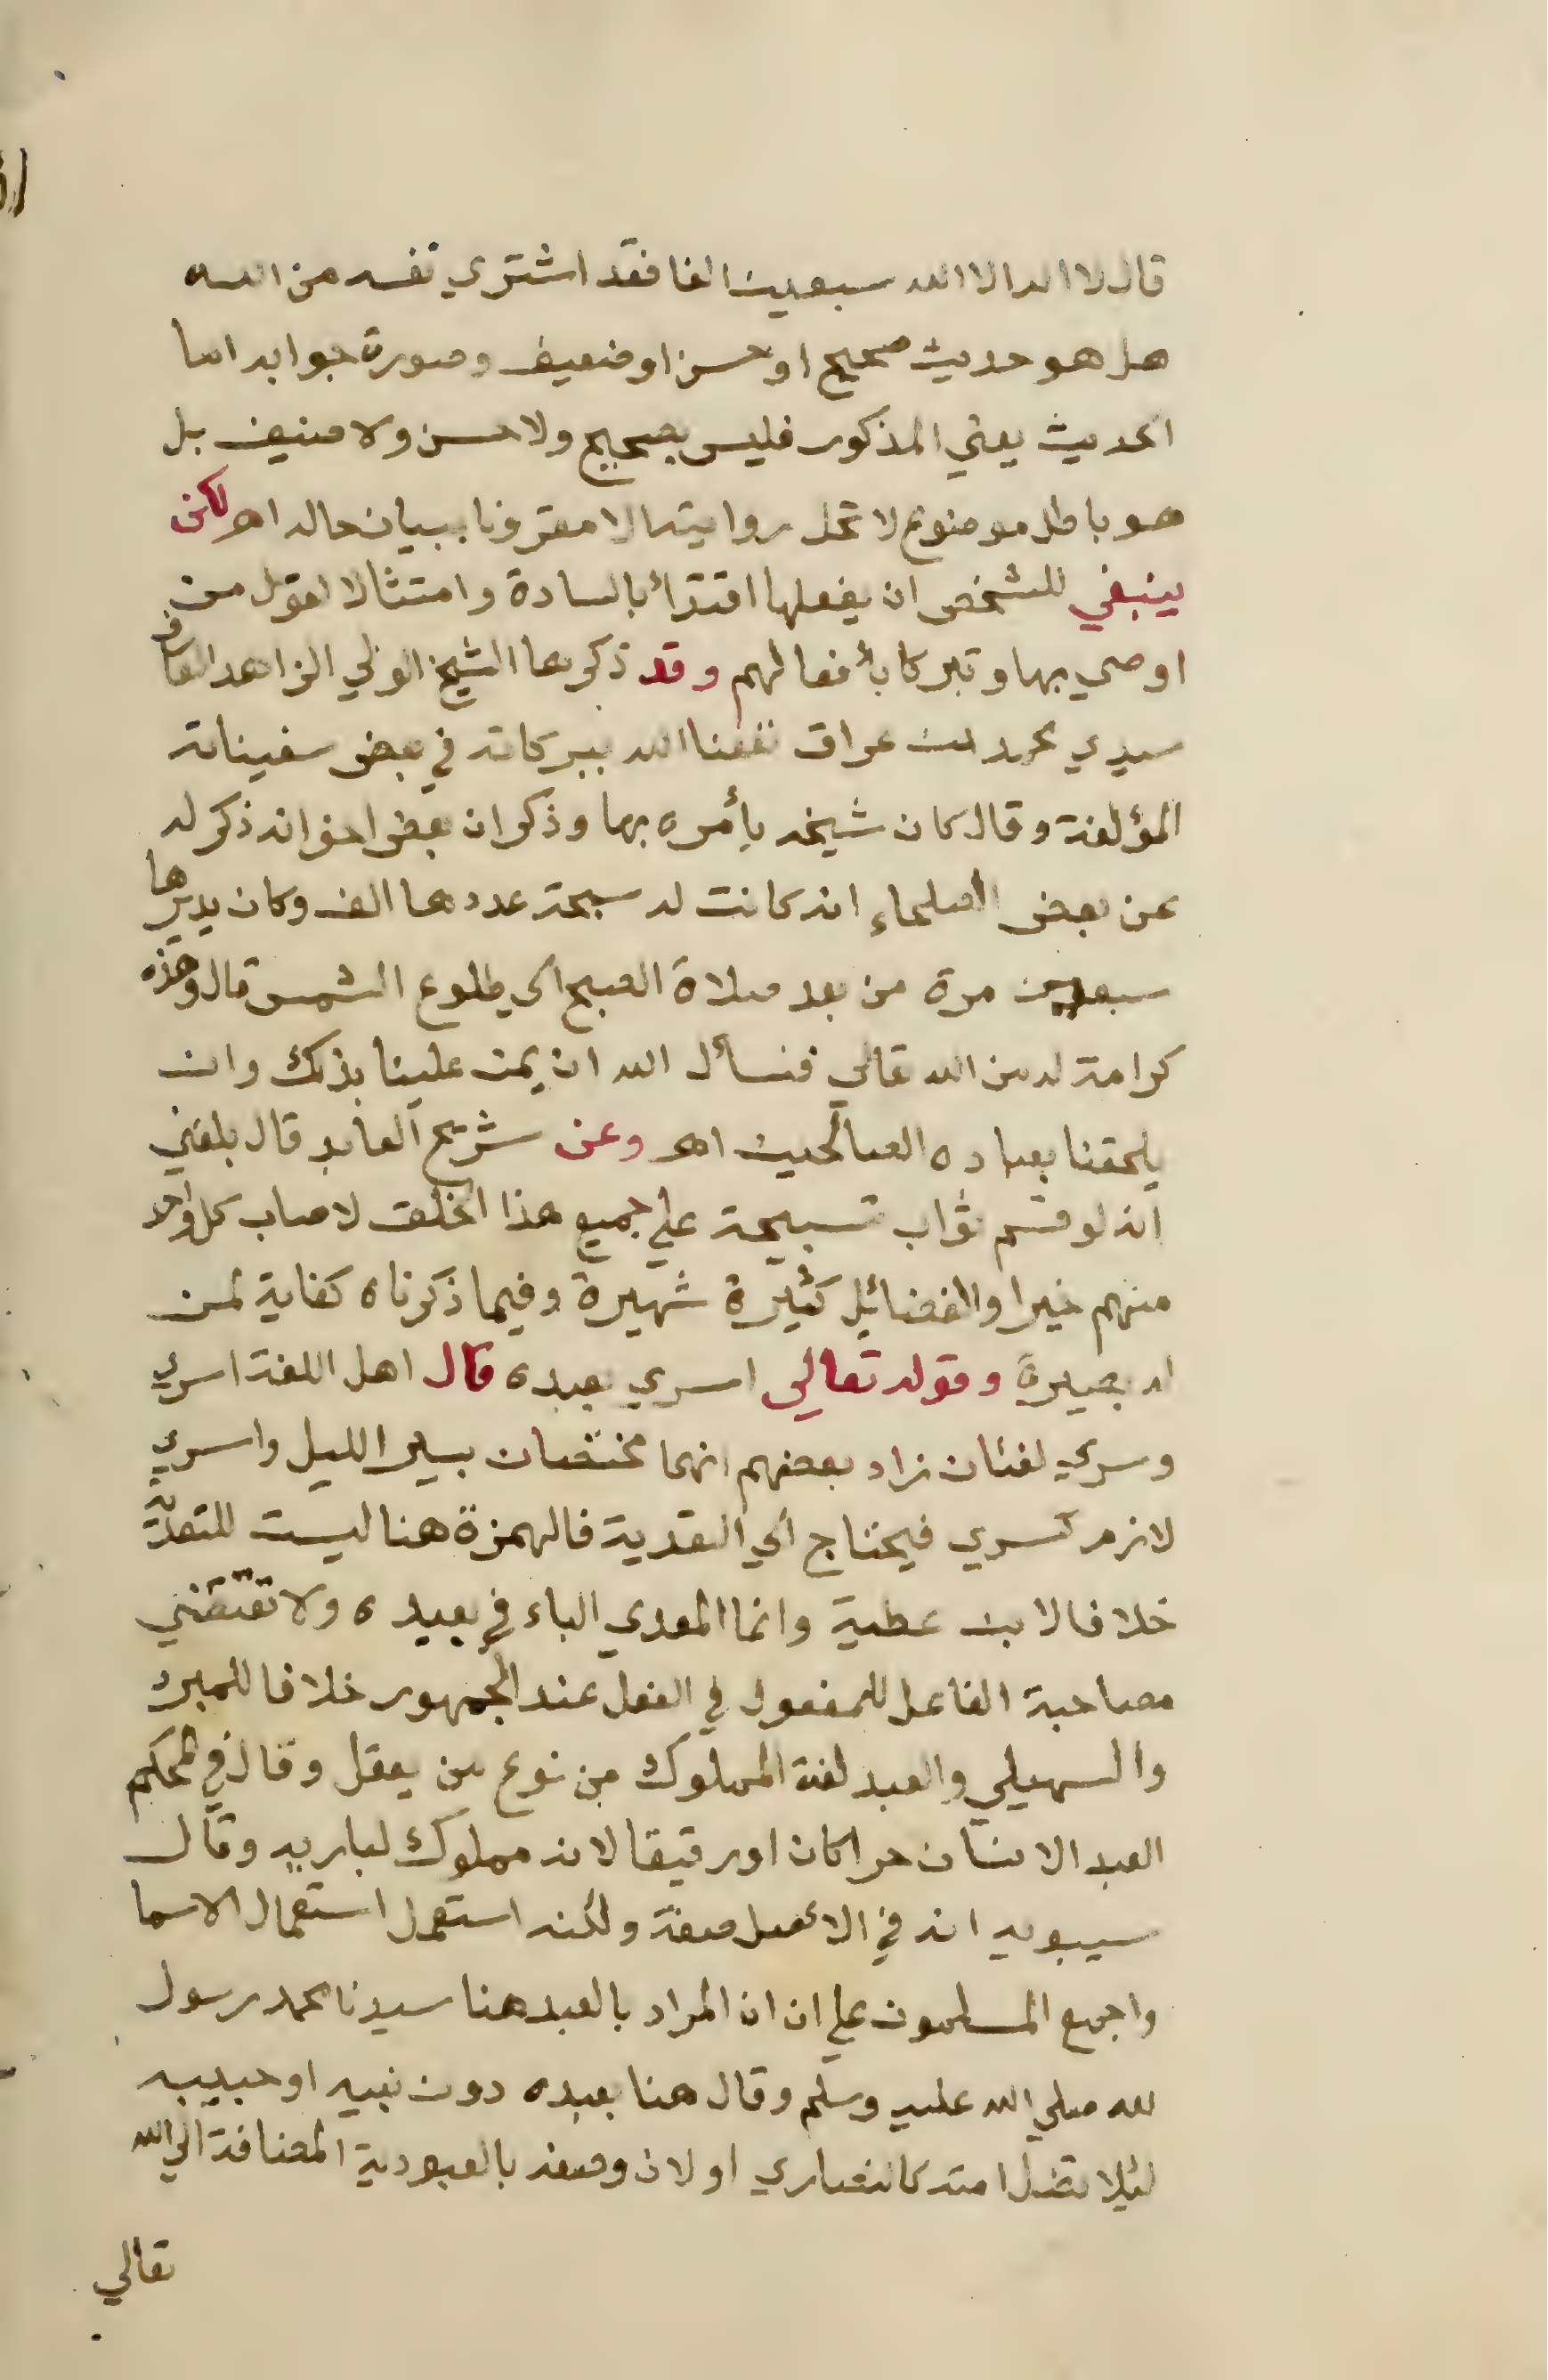 قال لا اله الا الله سبعين الفا فقد اشتري نفسه من الله
هل هو حديث صحيح او حسن او ضعيف وصورة جوابه اما
الحديث يعني المذكور فليس بصحيح ولا حسن ولا ضعيف بل
هو باطل موضوع لا تحل روايته الا مقرونا ببيان حاله اهـ لكن
ينبغي للشخص ان يفعلها اقتدأ بالسادة وامتثالا لقول من
اوصي بها وتبركا بأفعالهم وقد ذكرها الشيخ الولي الزاهد العارف
سيدي محمد بن عراق نفعنا الله ببركاته في بعض سفيناته
المؤلفة وقال كان شيخه يأمره بها وذكر ان بعض اخوانه ذكر له
عن بعض الصلحاء انه كانت له سبحة عددها الف وكان يديرها
سبعين مرة من بعد صلاة الصبح الي طلوع الشمس قال وهذه
كرامة له من الله تعالي فنسأل الله ان يمن علينا بذلك وان
يلحقنا بعباده الصالحين اهـ وعن شريح العابد قال بلغني
انه لو قسم ثواب تسبيحة علي جميع هذا الخلق لاصاب كل واحد
منهم خيرا والفضائل كثيرة شهيرة وفيما ذكرناه كفاية لمن
له بصيرة وقوله تعالي اسري بعبده قال اهل اللغة اسري
وسري لغتان زاد بعضهم انهما مختصان بسير الليل واسري
لازم كسري فيحتاج الي التعدية فالهمزة هنا ليست للتعدية
خلافا لابن عطية وانما المعدي الباء في بعبده ولا تقتضي
مصاحبة الفاعل للمفعول في الفعل عند الجمهور خلافا للمبرد
والسهيلي والعبد لغة المملوك من نوع من يعقل وقال في المحكم
العبد الانسان حرا كان او رقيقا لانه مملوك لباريه وقال
سيبويه انه في الأصل صفة ولكنه استعمل استعمال الاسما
واجمع المسلمون علي ان ان المراد بالعبد هنا سيدنا محمد رسول
لله صلي الله عليه وسلم وقال هنا بعبده دون نبيه او حبيبه
لئلا تضل امته كالنصاري او لان وصفه بالعبودية المضافة الي الله
تعالي